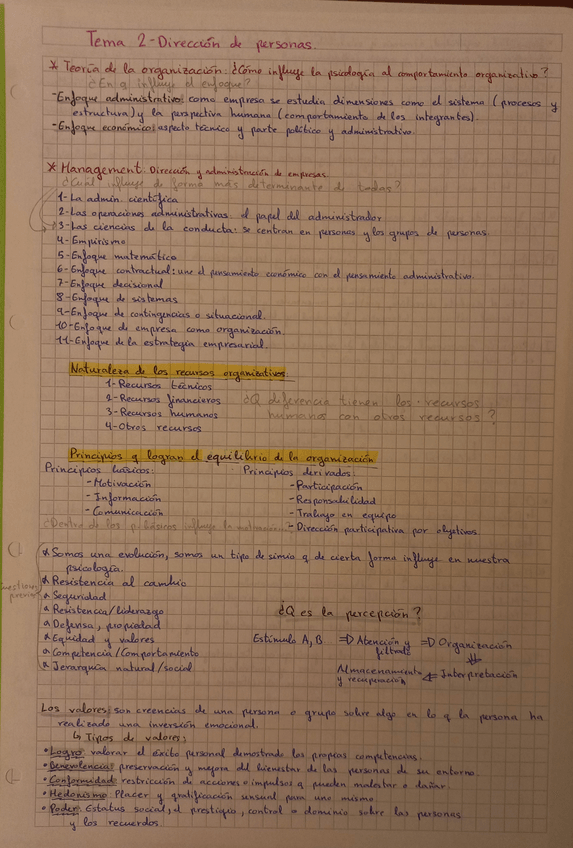 Tema 2-Dirección de personas.
* Teoría de la organización: ¿Cómo influye la psicología al comportamiento organizativo?
¿En q influye el enfoque?
-Enfoque administrativo: como empresa se estudia dimensiones como el sistema (procesos y
estructura) y la perspectiva humana (comportamiento de los integrantes).
-Enfoque económico: aspecto técnico y parte político y administrativo.
* Management: Dirección y administración de empresas.
¿Cuál influye de forma más determinante de todas?
1-La admin. científica
2-Las operaciones administrativas: el papel del administrador
3-Las ciencias de la conducta: se centran en personas y los grupos de personas.
4-Empirismo
5-Enfoque matemático
6-Enfoque contractual: une el pensamiento económico con el pensamiento administrativo.
7-Enfoque decisional
8-Enfoque de sistemas
9-Enfoque de contingencias o situacional.
10-Enfoque de empresa como organización.
11-Enfoque de la estrategia empresarial.
Naturaleza de los recursos organizativos:
1-Recursos técnicos
2-Recursos financieros
3-Recursos humanos
4-Otros recursos
¿Q diferencia tienen los recursos
humanos con otros recursos?
Principios q logran el equilibrio de la organización
Principios básicos:
-Motivación
-Información
-Comunicación
¿Dentro de los p.básicos influye la motivación
Principios derivados:
-Participación
-Responsabilidad
-Trabajo en equipo
-Dirección participativa por objetivos.
* Somos una evolución, somos un tipo de simio q de cierta forma influye en nuestra
psicología.
* Resistencia al cambio
* Seguridad
* Resistencia/liderazgo
* Defensa, propiedad
* Equidad y valores
* Competencia/Comportamiento
* Jerarquía natural/social
¿Q es la percepción?
Estímulo A, B ⇒ Atención y filtrado ⇒ Organización
⇓
Almacenamiento y recuperación ⇐ Interpretación
Los valores: son creencias de una persona o grupo sobre algo en lo q la persona ha
realizado una inversión emocional.
↳ Tipos de valores:
• Logro: valorar el éxito personal demostrado las propias competencias.
• Benevolencia: preservación y mejora del bienestar de las personas de su entorno
• Conformidad: restricción de acciones o impulsos q pueden molestar o dañar.
• Hedonismo: Placer y gratificación sensual para uno mismo
• Poder: Estatus social, el prestigio, control o dominio sobre las personas
y los recuerdos